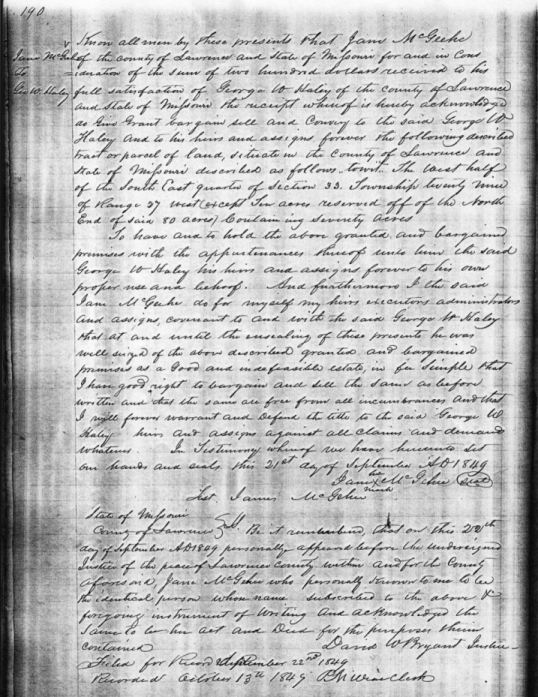 190
Know all men by these presents that Jane McGehe
Jane McGehe of the county of Lawrence and State of Missouri for and in Cons
To =ideration of the sum of two hundred dollars received to his
Geo W. Haley full satisfaction of George W Haley of the county of Lawrence
and State of Missouri the receipt whereof is hereby acknowledge
as Give Grant bargain sell and Convey to the said George W
Haley and to his heirs and assigns forever the following described
tract or parcel of land, situate in the County of Lawrence and
State of Missouri described as follows towit. The West half
of the South East quarter of Section 33. Township twenty nine
of Range 27 West (except Ten acres reserved off of the North
End of said 80 acres) Containing seventy acres
To have and to hold the above granted and bargained
premises with the appurtenances thereof unto him the said
George W Haley his heirs and assigns forever to his own
proper use and behoof. And furthermore I the said
Jane McGehe do for myself my heirs executors administrators
and assigns, covenant to and with the said George W Haley
that at and until the ensealing of these presents he was
well seized of the above described granted and bargained
premises as a Good and indefeasible estate, in fee Simple that
I have good right to bargain and sell the same as before
written and that the same are free from all incumbrances and that
I will forever warrant and Defend the title to the said George W
Haley heirs and assigns against all claims and demand
whatever. In Testimony whereof we have hereunto set
our hands and seals this 21st day of September AD 1849
Jane her x mark McGehee (Seal)
Test. James McGehee
State of Missouri
County of Lawrence } SS. Be it remembered, that on this 22th
day of September AD 1849 personally appeared before the undersigned
Justice of the peace of Lawrence County within and for the County
aforesaid, Jane McGehee who personally known to me to be
the identical person whose name subscribed to the above &
foregoing instrument of Writing and acknowledged the
same to be her act and Deed for the purposes therein
contained David W Bryant Justice
Filed for Record September 22nd 1849
Recorded October 13th 1849 Clerk